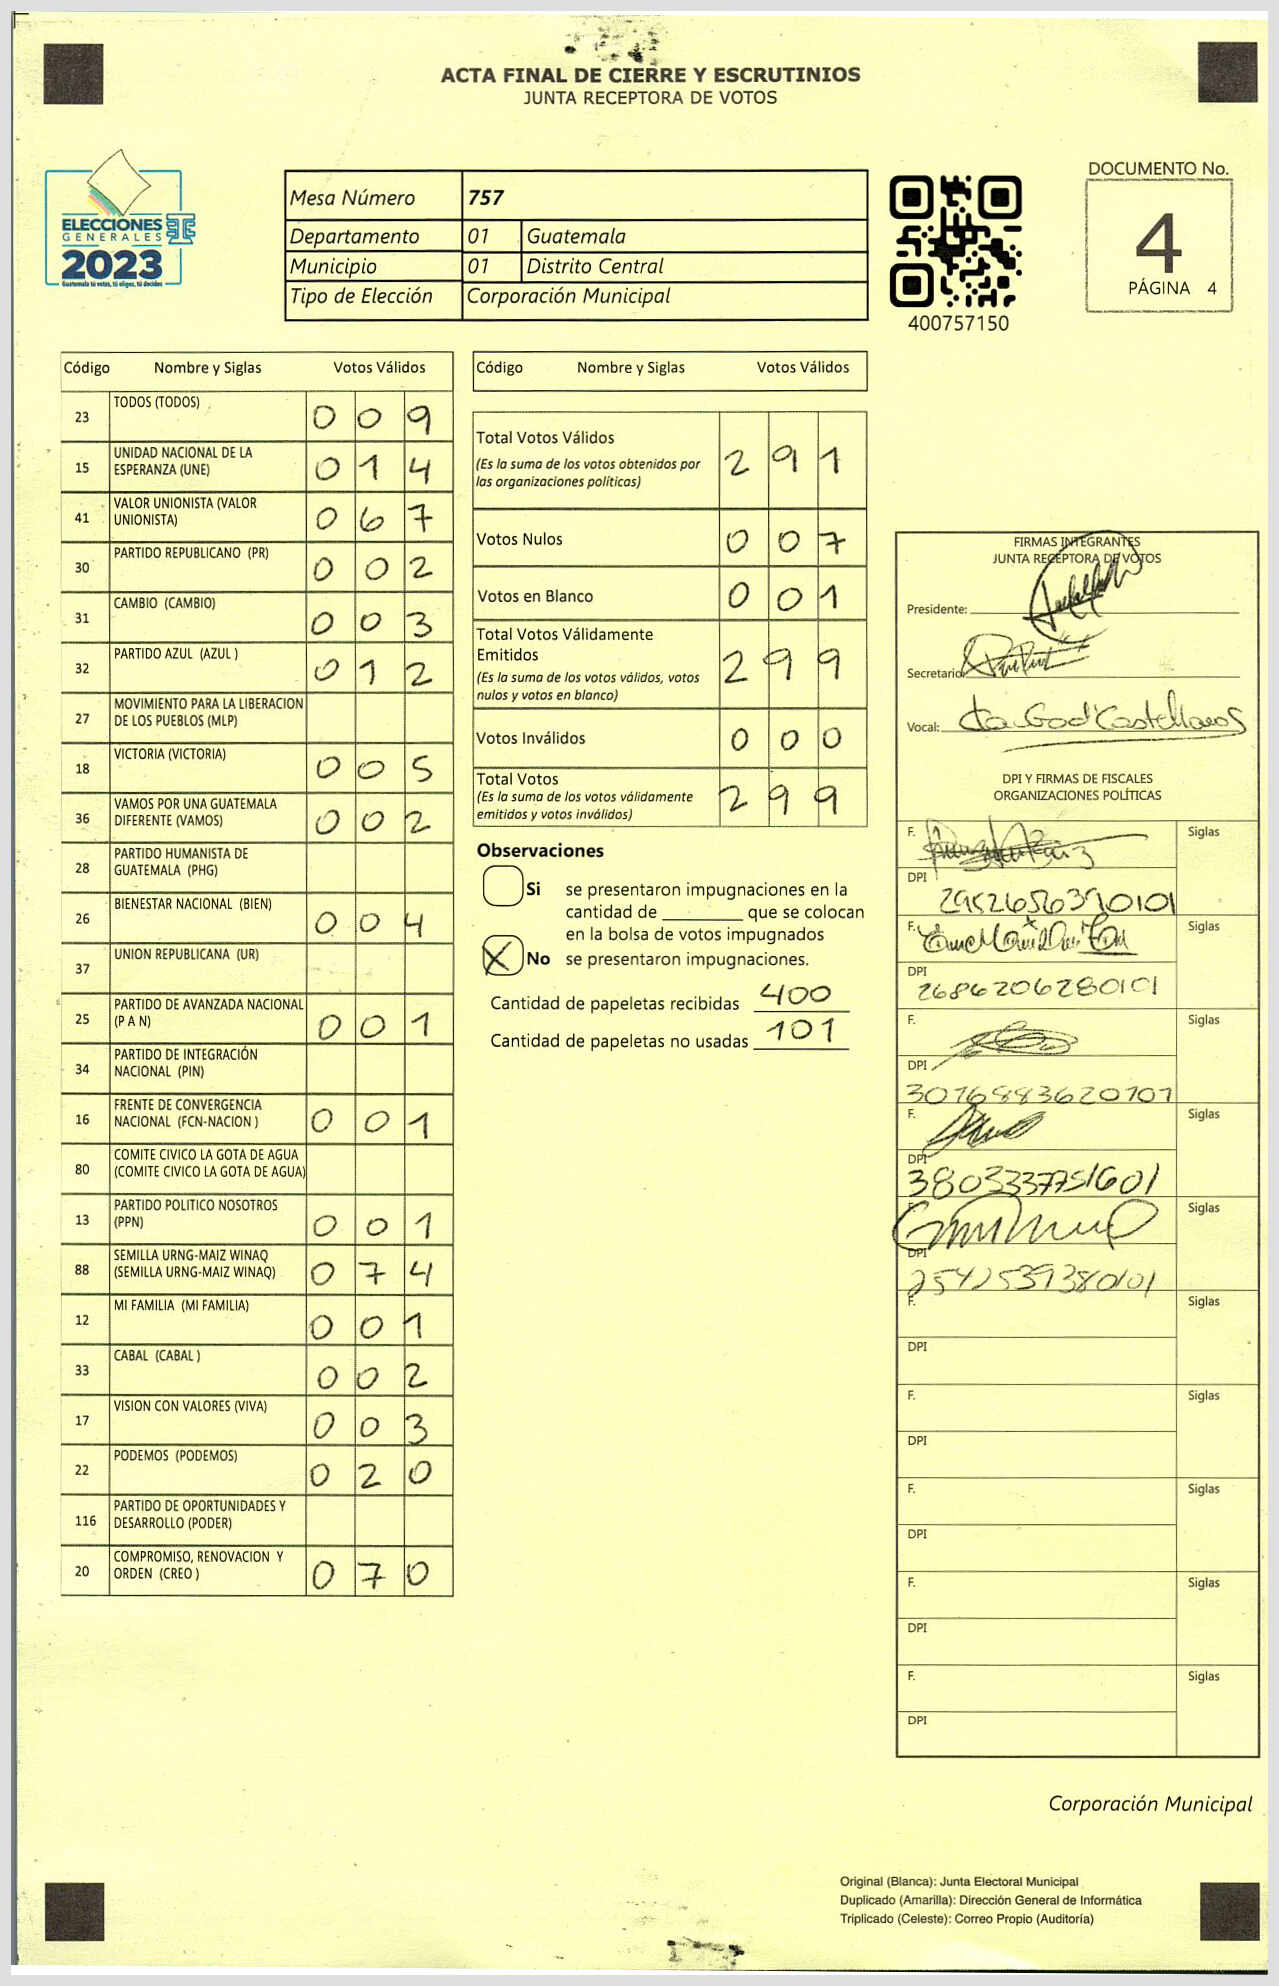 ACTA FINAL DE CIERRE Y ESCRUTINIOS
JUNTA RECEPTORA DE VOTOS
ELECCIONES
GENERALES
2023
Guatemala tú votas, tú eliges, tú decides
Mesa Número 757
Departamento 01 Guatemala
Municipio 01 Distrito Central
Tipo de Elección Corporación Municipal
400757150
DOCUMENTO No.
4
PÁGINA 4
Código Nombre y Siglas Votos Válidos
23 TODOS (TODOS) 0 0 9
15 UNIDAD NACIONAL DE LA
ESPERANZA (UNE) 0 1 4
41 VALOR UNIONISTA (VALOR
UNIONISTA) 0 6 7
30 PARTIDO REPUBLICANO (PR) 0 0 2
31 CAMBIO (CAMBIO) 0 0 3
32 PARTIDO AZUL (AZUL ) 0 1 2
27 MOVIMIENTO PARA LA LIBERACION
DE LOS PUEBLOS (MLP)
18 VICTORIA (VICTORIA) 0 0 5
36 VAMOS POR UNA GUATEMALA
DIFERENTE (VAMOS) 0 0 2
28 PARTIDO HUMANISTA DE
GUATEMALA (PHG)
26 BIENESTAR NACIONAL (BIEN) 0 0 4
37 UNION REPUBLICANA (UR)
25 PARTIDO DE AVANZADA NACIONAL
(P A N) 0 0 1
34 PARTIDO DE INTEGRACIÓN
NACIONAL (PIN)
16 FRENTE DE CONVERGENCIA
NACIONAL (FCN-NACION ) 0 0 1
80 COMITE CIVICO LA GOTA DE AGUA
(COMITE CIVICO LA GOTA DE AGUA)
13 PARTIDO POLITICO NOSOTROS
(PPN) 0 0 1
88 SEMILLA URNG-MAIZ WINAQ
(SEMILLA URNG-MAIZ WINAQ) 0 7 4
12 MI FAMILIA (MI FAMILIA) 0 0 1
33 CABAL (CABAL ) 0 0 2
17 VISION CON VALORES (VIVA) 0 0 3
22 PODEMOS (PODEMOS) 0 2 0
116 PARTIDO DE OPORTUNIDADES Y
DESARROLLO (PODER)
20 COMPROMISO, RENOVACION Y
ORDEN (CREO ) 0 7 0
Código Nombre y Siglas Votos Válidos
Total Votos Válidos 2 9 1
(Es la suma de los votos obtenidos por
las organizaciones políticas)
Votos Nulos 0 0 7
Votos en Blanco 0 0 1
Total Votos Válidamente
Emitidos 2 9 9
(Es la suma de los votos válidos, votos
nulos y votos en blanco)
Votos Inválidos 0 0 0
Total Votos 2 9 9
(Es la suma de los votos válidamente
emitidos y votos inválidos)
Observaciones
Si se presentaron impugnaciones en la
cantidad de ________ que se colocan
en la bolsa de votos impugnados
X No se presentaron impugnaciones.
Cantidad de papeletas recibidas 400
Cantidad de papeletas no usadas 101
FIRMAS INTEGRANTES
JUNTA RECEPTORA DE VOTOS
Presidente:
Secretario:
Vocal:
DPI Y FIRMAS DE FISCALES
ORGANIZACIONES POLÍTICAS
F. Siglas
DPI
2952656390101
F. Siglas
DPI
2686206280101
F. Siglas
DPI
3016883620101
F. Siglas
DPI
3803337751601
F. Siglas
DPI
2542539380101
F. Siglas
DPI
F. Siglas
DPI
F. Siglas
DPI
F. Siglas
DPI
F. Siglas
DPI
Corporación Municipal
Original (Blanca): Junta Electoral Municipal
Duplicado (Amarilla): Dirección General de Informática
Triplicado (Celeste): Correo Propio (Auditoría)